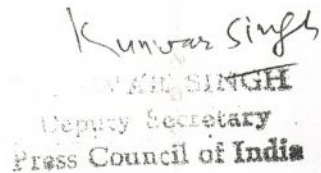 Kunwar Singh
SINGH
Deputy Secretary
Press Council of India